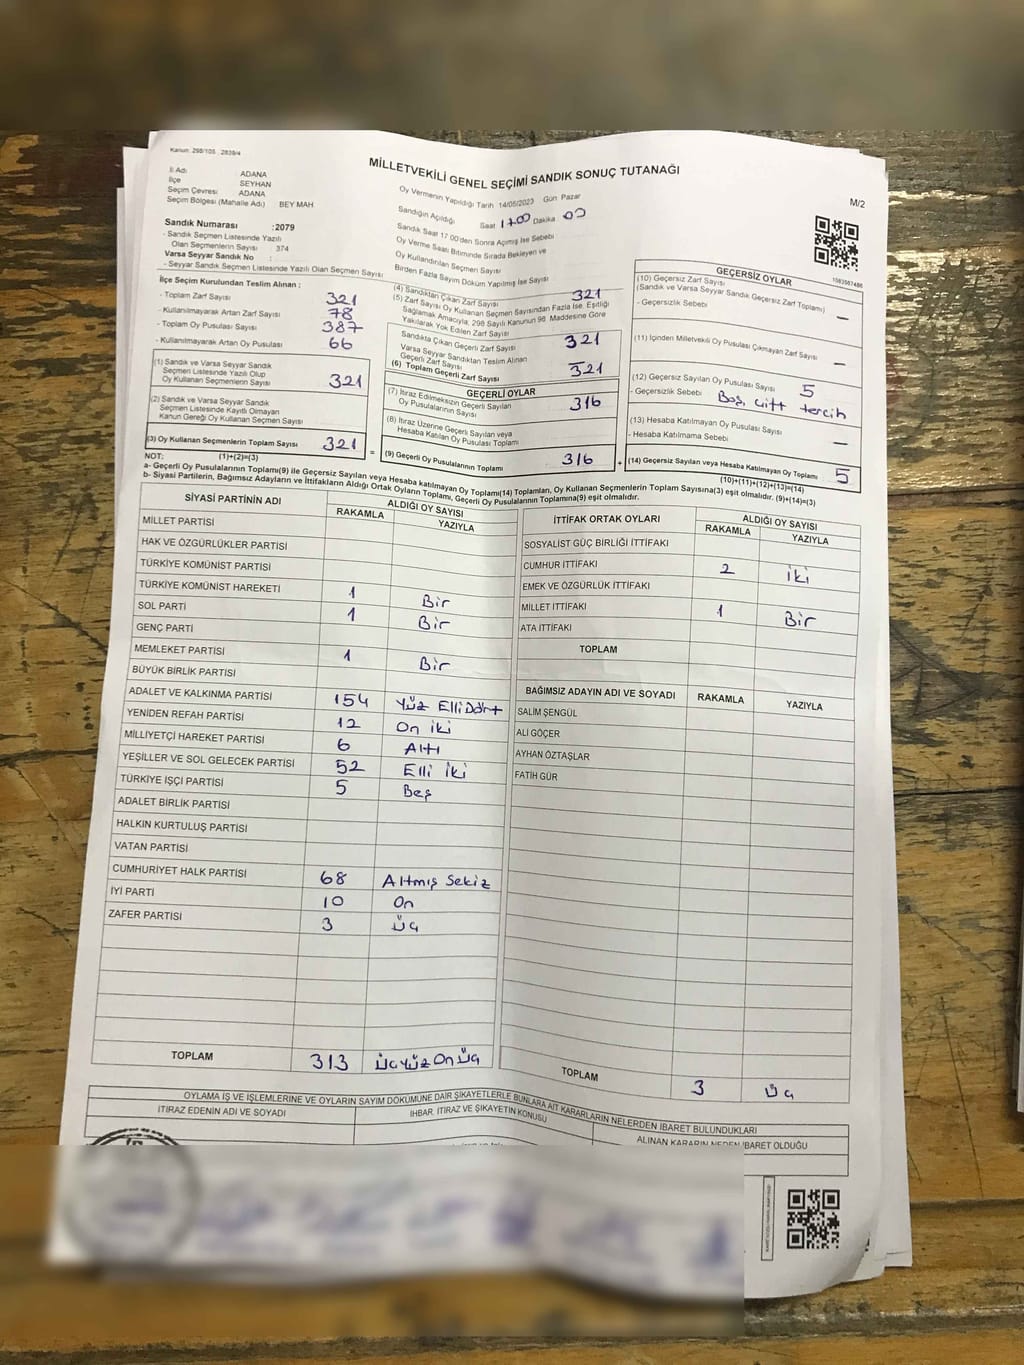 Kanun: 298/105 , 2839/4
MİLLETVEKİLİ GENEL SEÇİMİ SANDIK SONUÇ TUTANAĞI
M/2
İl Adı ADANA
İlçe SEYHAN
Seçim Çevresi ADANA
Seçim Bölgesi (Mahalle Adı) BEY MAH.
Sandık Numarası :2079
- Sandık Seçmen Listesinde Yazılı
Olan Seçmenlerin Sayısı : 374
Varsa Seyyar Sandık No :
- Seyyar Sandık Seçmen Listesinde Yazılı Olan Seçmen Sayısı
İlçe Seçim Kurulundan Teslim Alınan :
- Toplam Zarf Sayısı 321
- Kullanılmayarak Artan Zarf Sayısı 78
- Toplam Oy Pusulası Sayısı 387
- Kullanılmayarak Artan Oy Pusulası 66
(1) Sandık ve Varsa Seyyar Sandık
Seçmen Listesinde Yazılı Olup
Oy Kullanan Seçmenlerin Sayısı 321
(2) Sandık ve Varsa Seyyar Sandık
Seçmen Listesinde Kayıtlı Olmayan
Kanun Gereği Oy Kullanan Seçmen Sayısı
(3) Oy Kullanan Seçmenlerin Toplam Sayısı 321
(1)+(2)=(3)
Oy Vermenin Yapıldığı Tarih 14/05/2023 Gün Pazar
Sandığın Açıldığı Saat 17:00 Dakika 00
Sandık Saat 17.00'den Sonra Açılmış İse Sebebi
Oy Verme Saati Bitiminde Sırada Bekleyen ve
Oy Kullandırılan Seçmen Sayısı
Birden Fazla Sayım Döküm Yapılmış İse Sayısı
(4) Sandıktan Çıkan Zarf Sayısı 321
(5) Zarf Sayısı Oy Kullanan Seçmen Sayısından Fazla İse, Eşitliği
Sağlamak Amacıyla, 298 Sayılı Kanunun 98. Maddesine Göre
Yakılarak Yok Edilen Zarf Sayısı
Sandıkta Çıkan Geçerli Zarf Sayısı 321
Varsa Seyyar Sandıktan Teslim Alınan
Geçerli Zarf Sayısı
(6) Toplam Geçerli Zarf Sayısı 321
GEÇERLİ OYLAR
(7) İtiraz Edilmeksizin Geçerli Sayılan
Oy Pusulalarının Sayısı 316
(8) İtiraz Üzerine Geçerli Sayılan veya
Hesaba Katılan Oy Pusulası Toplamı
= (9) Geçerli Oy Pusulalarının Toplamı 316
GEÇERSİZ OYLAR
1083987486
(10) Geçersiz Zarf Sayısı
(Sandık ve Varsa Seyyar Sandık Geçersiz Zarf Toplamı)
- Geçersizlik Sebebi —
(11) İçinden Milletvekili Oy Pusulası Çıkmayan Zarf Sayısı —
(12) Geçersiz Sayılan Oy Pusulası Sayısı 5
- Geçersizlik Sebebi Boş, çift tercih
(13) Hesaba Katılmayan Oy Pusulası Sayısı
- Hesaba Katılmama Sebebi —
+ (14) Geçersiz Sayılan veya Hesaba Katılmayan Oy Toplamı 5
(10)+(11)+(12)+(13)=(14)
NOT:
a- Geçerli Oy Pusulalarının Toplamı(9) ile Geçersiz Sayılan veya Hesaba Katılmayan Oy Toplamı(14) Toplamları, Oy Kullanan Seçmenlerin Toplam Sayısına(3) eşit olmalıdır. (9)+(14)=(3)
b- Siyasi Partilerin, Bağımsız Adayların ve İttifakların Aldığı Ortak Oyların Toplamı, Geçerli Oy Pusulalarının Toplamına(9) eşit olmalıdır.
SİYASİ PARTİNİN ADI ALDIĞI OY SAYISI
RAKAMLA YAZIYLA
MİLLET PARTİSİ
HAK VE ÖZGÜRLÜKLER PARTİSİ
TÜRKİYE KOMÜNİST PARTİSİ
TÜRKİYE KOMÜNİST HAREKETİ 1 Bir
SOL PARTİ 1 Bir
GENÇ PARTİ
MEMLEKET PARTİSİ 1 Bir
BÜYÜK BİRLİK PARTİSİ
ADALET VE KALKINMA PARTİSİ 154 Yüz Elli Dört
YENİDEN REFAH PARTİSİ 12 On iki
MİLLİYETÇİ HAREKET PARTİSİ 6 Altı
YEŞİLLER VE SOL GELECEK PARTİSİ 52 Elli iki
TÜRKİYE İŞÇİ PARTİSİ 5 Beş
ADALET BİRLİK PARTİSİ
HALKIN KURTULUŞ PARTİSİ
VATAN PARTİSİ
CUMHURİYET HALK PARTİSİ 68 Altmış Sekiz
İYİ PARTİ 10 On
ZAFER PARTİSİ 3 Üç
TOPLAM 313 Üçyüz On Üç
İTTİFAK ORTAK OYLARI ALDIĞI OY SAYISI
RAKAMLA YAZIYLA
SOSYALİST GÜÇ BİRLİĞİ İTTİFAKI
CUMHUR İTTİFAKI 2 iki
EMEK VE ÖZGÜRLÜK İTTİFAKI
MİLLET İTTİFAKI 1 Bir
ATA İTTİFAKI
TOPLAM
BAĞIMSIZ ADAYIN ADI VE SOYADI RAKAMLA YAZIYLA
SALİM ŞENGÜL
ALİ GÖÇER
AYHAN ÖZTAŞLAR
FATİH GÜR
TOPLAM 3 Üç
OYLAMA İŞ VE İŞLEMLERİNE VE OYLARIN SAYIM DÖKÜMÜNE DAİR ŞİKAYETLERLE BUNLARA AİT KARARLARIN NELERDEN İBARET BULUNDUKLARI
İTİRAZ EDENİN ADI VE SOYADI İHBAR, İTİRAZ VE ŞİKAYETİN KONUSU ALINAN KARARIN NEDEN İBARET OLDUĞU